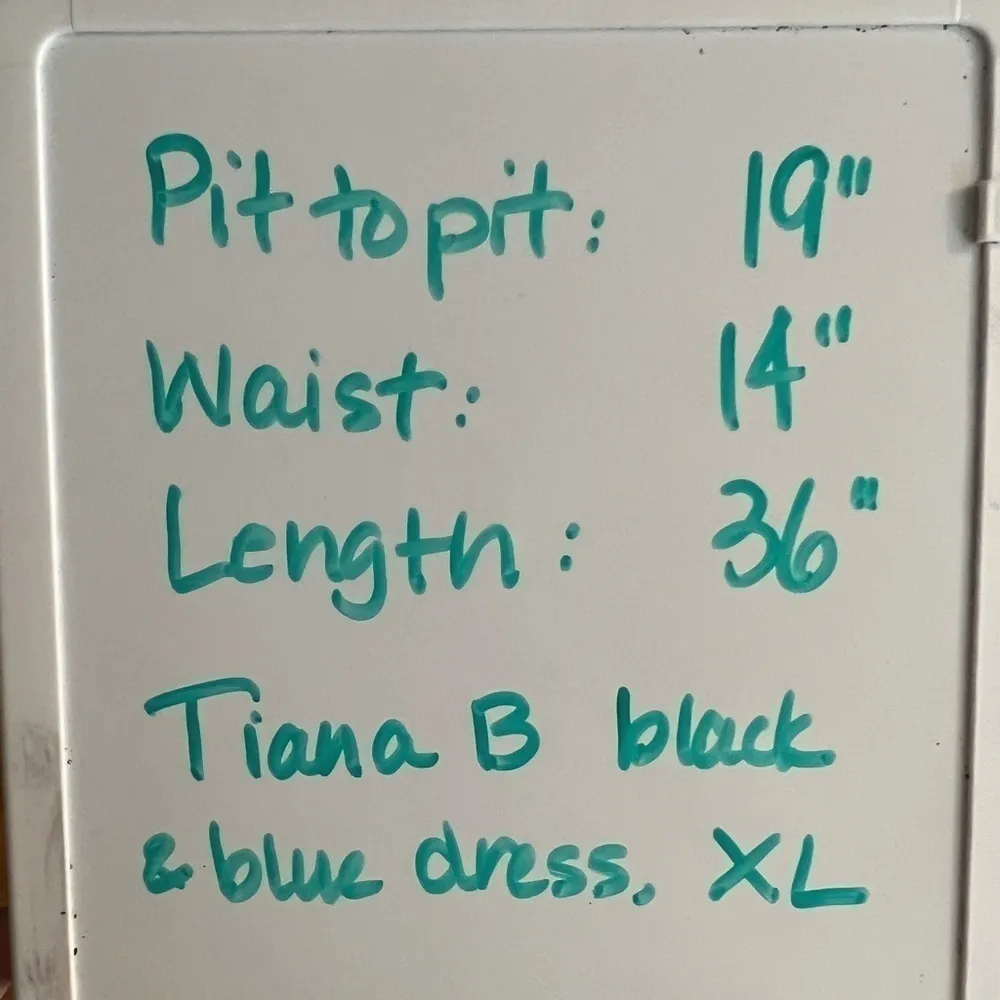 Pit to pit: 19"
Waist: 14"
Length: 36"
Tiana B black
& blue dress, XL